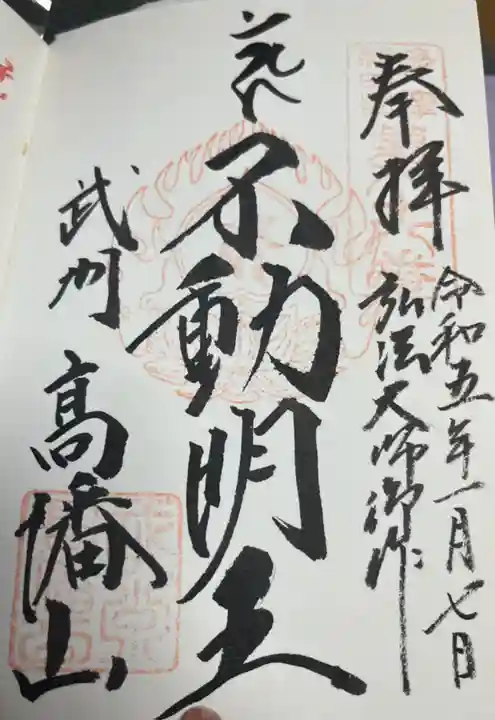 奉拝
令和五年一月七日
弘法大師御作
不動明王
武州
高幡山